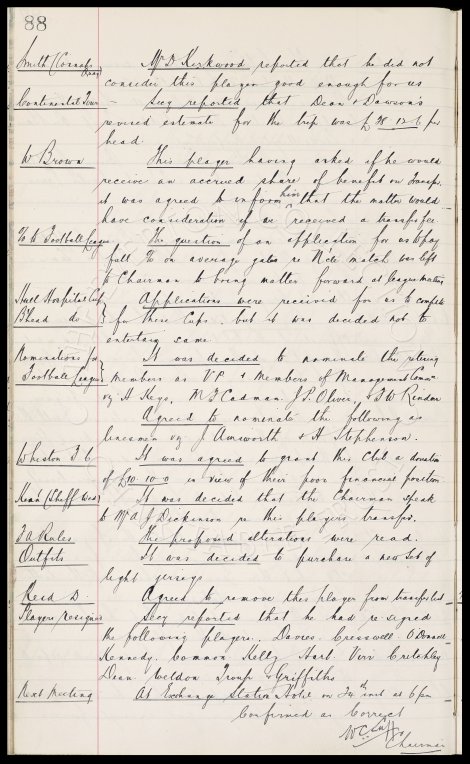 88
Smith (Connahs Quay) Mr D. Kirkwood reported that he did not
consider this player good enough for us
Continental Tour - Secy reported that Dean & Dawson's
revised estimate for the trip was £ 12 per
head.
W Brown This player having asked if he would
receive an accrued share of benefit on transfer.
it was agreed to inform him that the matter would
have consideration if we received a transfer fee
% to Football League The question of an application for us to pay
full % on average gates re match was left
to Chairman to bring matter forward at league meeting
Hull Hospital Cup } Applications were received for us to compete
B'head do } for these Cups. but it was decided not to
entertain same.
Nominations for } It was decided to nominate the retiring
Football League } members as V.P. & members of Management Comm
vz H Keys. M J Cadman. J.P. Oliver, &
Agreed to nominate the following as
linesmen vz J Ainsworth & H Stephenson.
Whiston F C It was agreed to grant this Club a donation
of £10.10.0 in view of their poor financial position
(Sheff Wed) It was decided that the Chairman speak
to Mr A J Dickinson re this players transfer.
F A Rules The proposed alterations were read.
Outfits It was decided to purchase a new set of
light jerseys
Reid D. Agreed to remove this player from transfer list
Players resigned Secy reported that he had re-signed
the following players. Davies. Cresswell. O'Donnell
Kennedy. Common. Kelly Hart. Virr Critchley
Dean Weldon Troup & Griffiths
Next Meeting At Exchange Station Hotel on inst at 6 pm
Confirmed as Correct
W C Cuff
Chairman